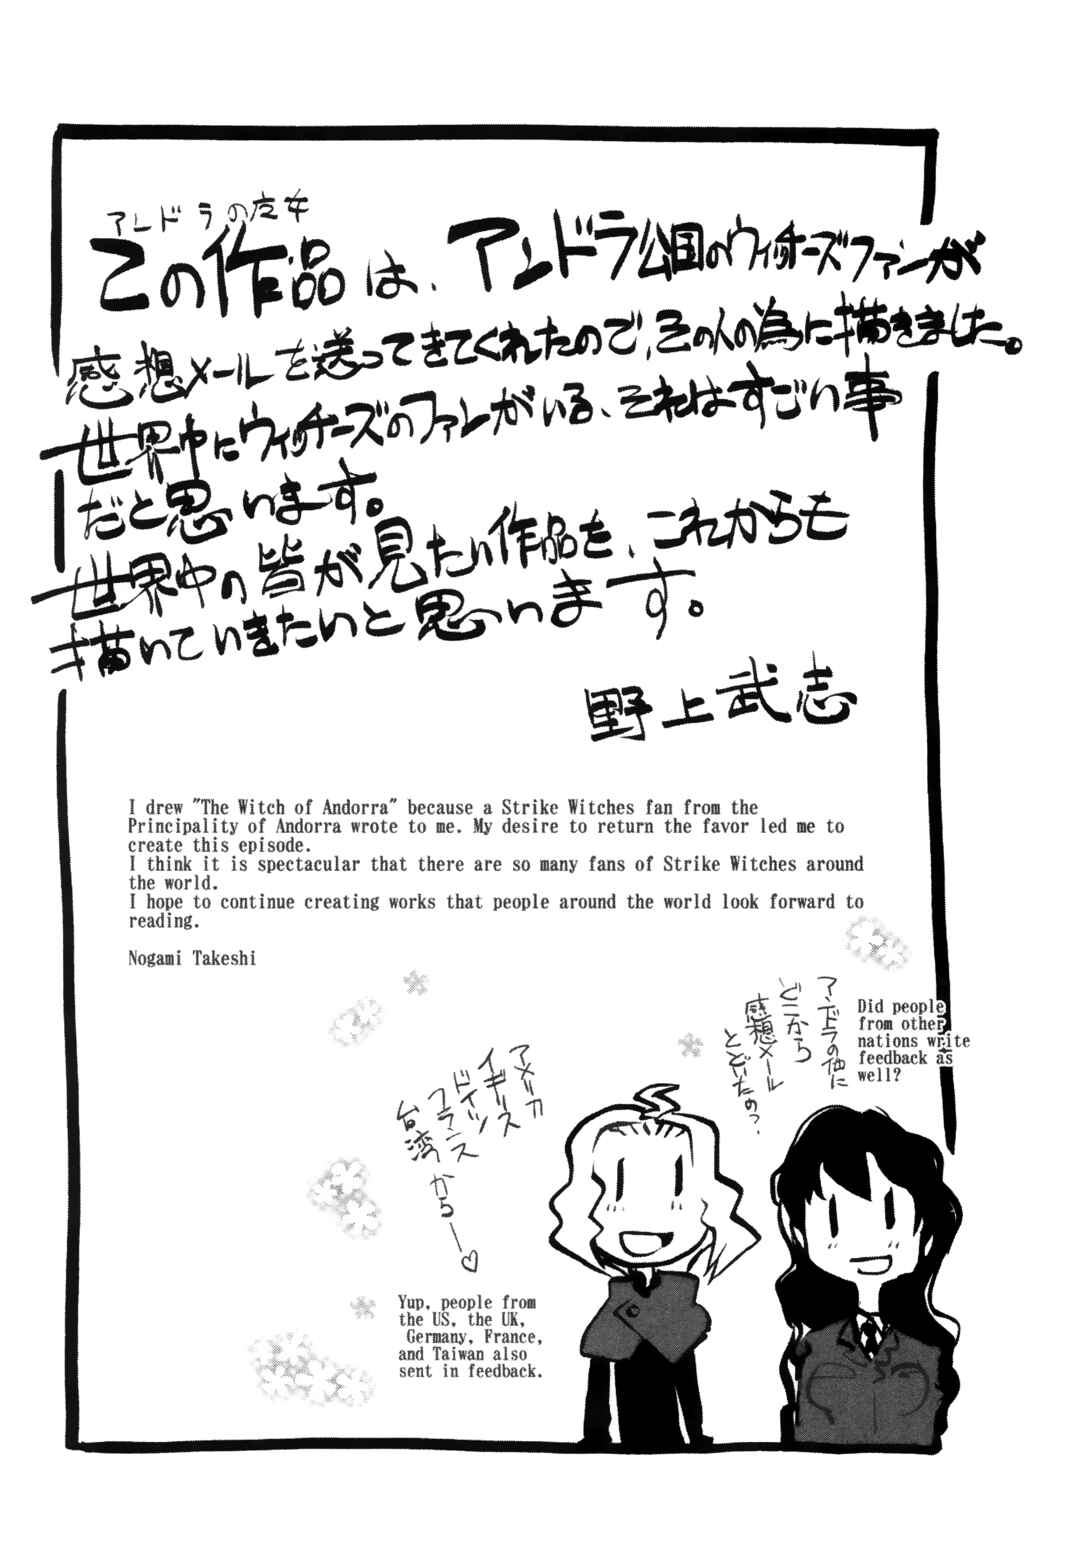 アンドラの魔女
この作品は、アンドラ公国のウィッチーズファンが
感想メールを送ってきてくれたので、その人の為に描きました。
世界中にウィッチーズのファンがいる、それはすごい事
だと思います。
世界中の皆が見たい作品を、これからも
描いていきたいと思います。
野上武志
I drew "The Witch of Andorra" because a Strike Witches fan from the
Principality of Andorra wrote to me. My desire to return the favor led me to
create this episode.
I think it is spectacular that there are so many fans of Strike Witches around
the world.
I hope to continue creating works that people around the world look forward to
reading.
Nogami Takeshi
アンドラの他に
どこから
感想メール
とどいたの?
Did people
from other
nations write
feedback as
well?
アメリカ
イギリス
ドイツ
フランス
台湾からー♡
Yup, people from
the US, the UK,
Germany, France,
and Taiwan also
sent in feedback.